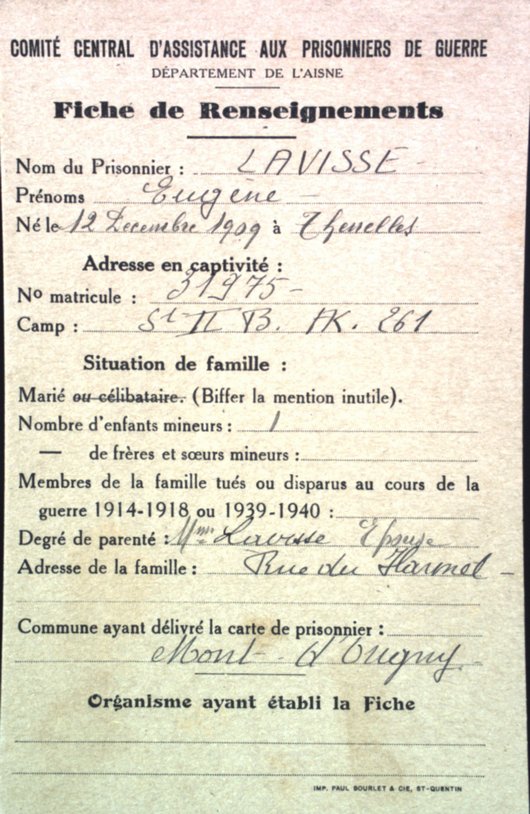 COMITÉ CENTRAL D'ASSISTANCE AUX PRISONNIERS DE GUERRE
DÉPARTEMENT DE L'AISNE
Fiche de Renseignements
Nom du Prisonnier : LAVISSE
Prénoms Eugène
Né le 12 Decembre 1909 à Thenelles
Adresse en captivité :
No matricule : 31975
Camp : St II B. AK. 261
Situation de famille :
Marié ou célibataire. (Biffer la mention inutile).
Nombre d'enfants mineurs : 1
— de frères et sœurs mineurs :
Membres de la famille tués ou disparus au cours de la
guerre 1914-1918 ou 1939-1940 :
Degré de parenté : Mme Lavisse Epouse
Adresse de la famille : Rue du Hamel
Commune ayant délivré la carte de prisonnier :
Mont d'Origny
Organisme ayant établi la Fiche
IMP. PAUL BOURLET & CIE, ST-QUENTIN